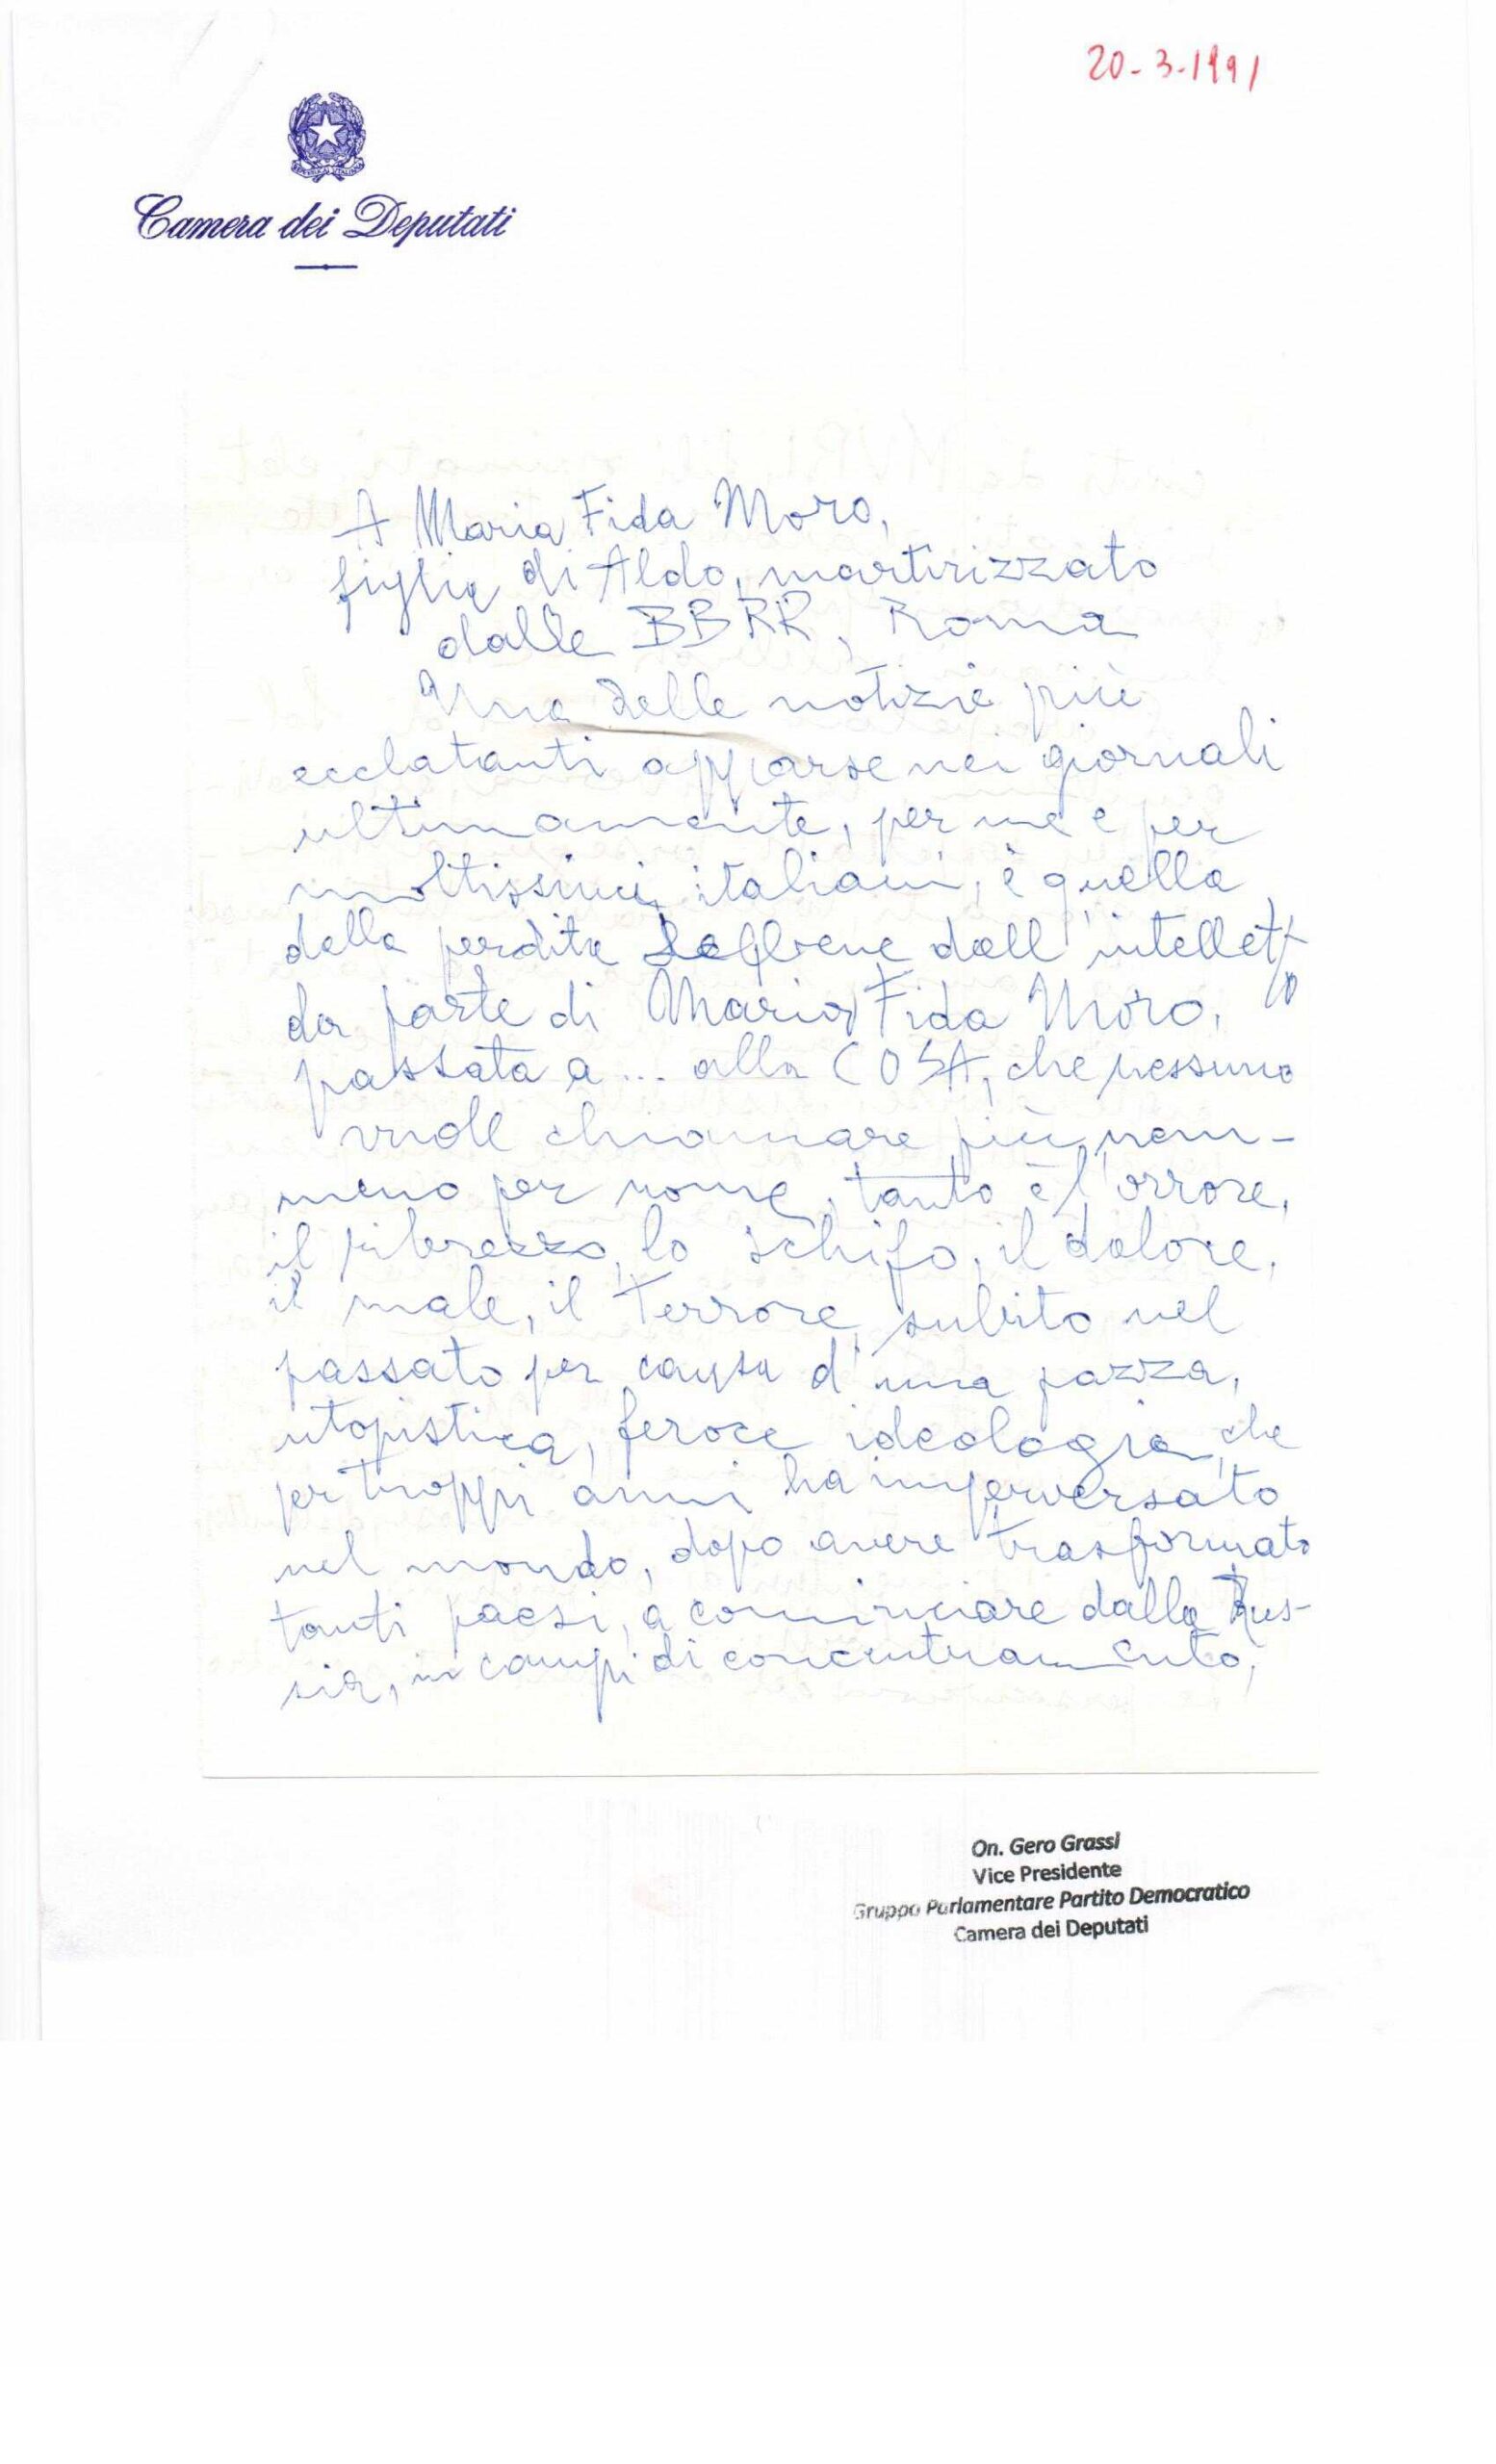 20-3-1991
Camera dei Deputati
A Maria Fida Moro,
figlia di Aldo, martirizzato
dalle BBRR, Roma
Una delle notizie più
ecclatanti apparse nei giornali
ultimamente, per me e per
moltissimi italiani, è quella
della perdita del bene dell'intelletto
da parte di Maria Fida Moro,
passata a... alla COSA, che nessuno
vuole chiamare più nem-
meno per nome, tanto è l'orrore,
il ribrezzo, lo schifo, il dolore,
il male, il terrore subito nel
passato per causa d'una pazza,
utopistica, feroce ideologia, che
per troppi anni ha imperversato
nel mondo, dopo avere trasformato
tanti paesi, a cominciare dalla Rus-
sia, in campi di concentramento,
On. Gero Grassi
Vice Presidente
Gruppo Parlamentare Partito Democratico
Camera dei Deputati